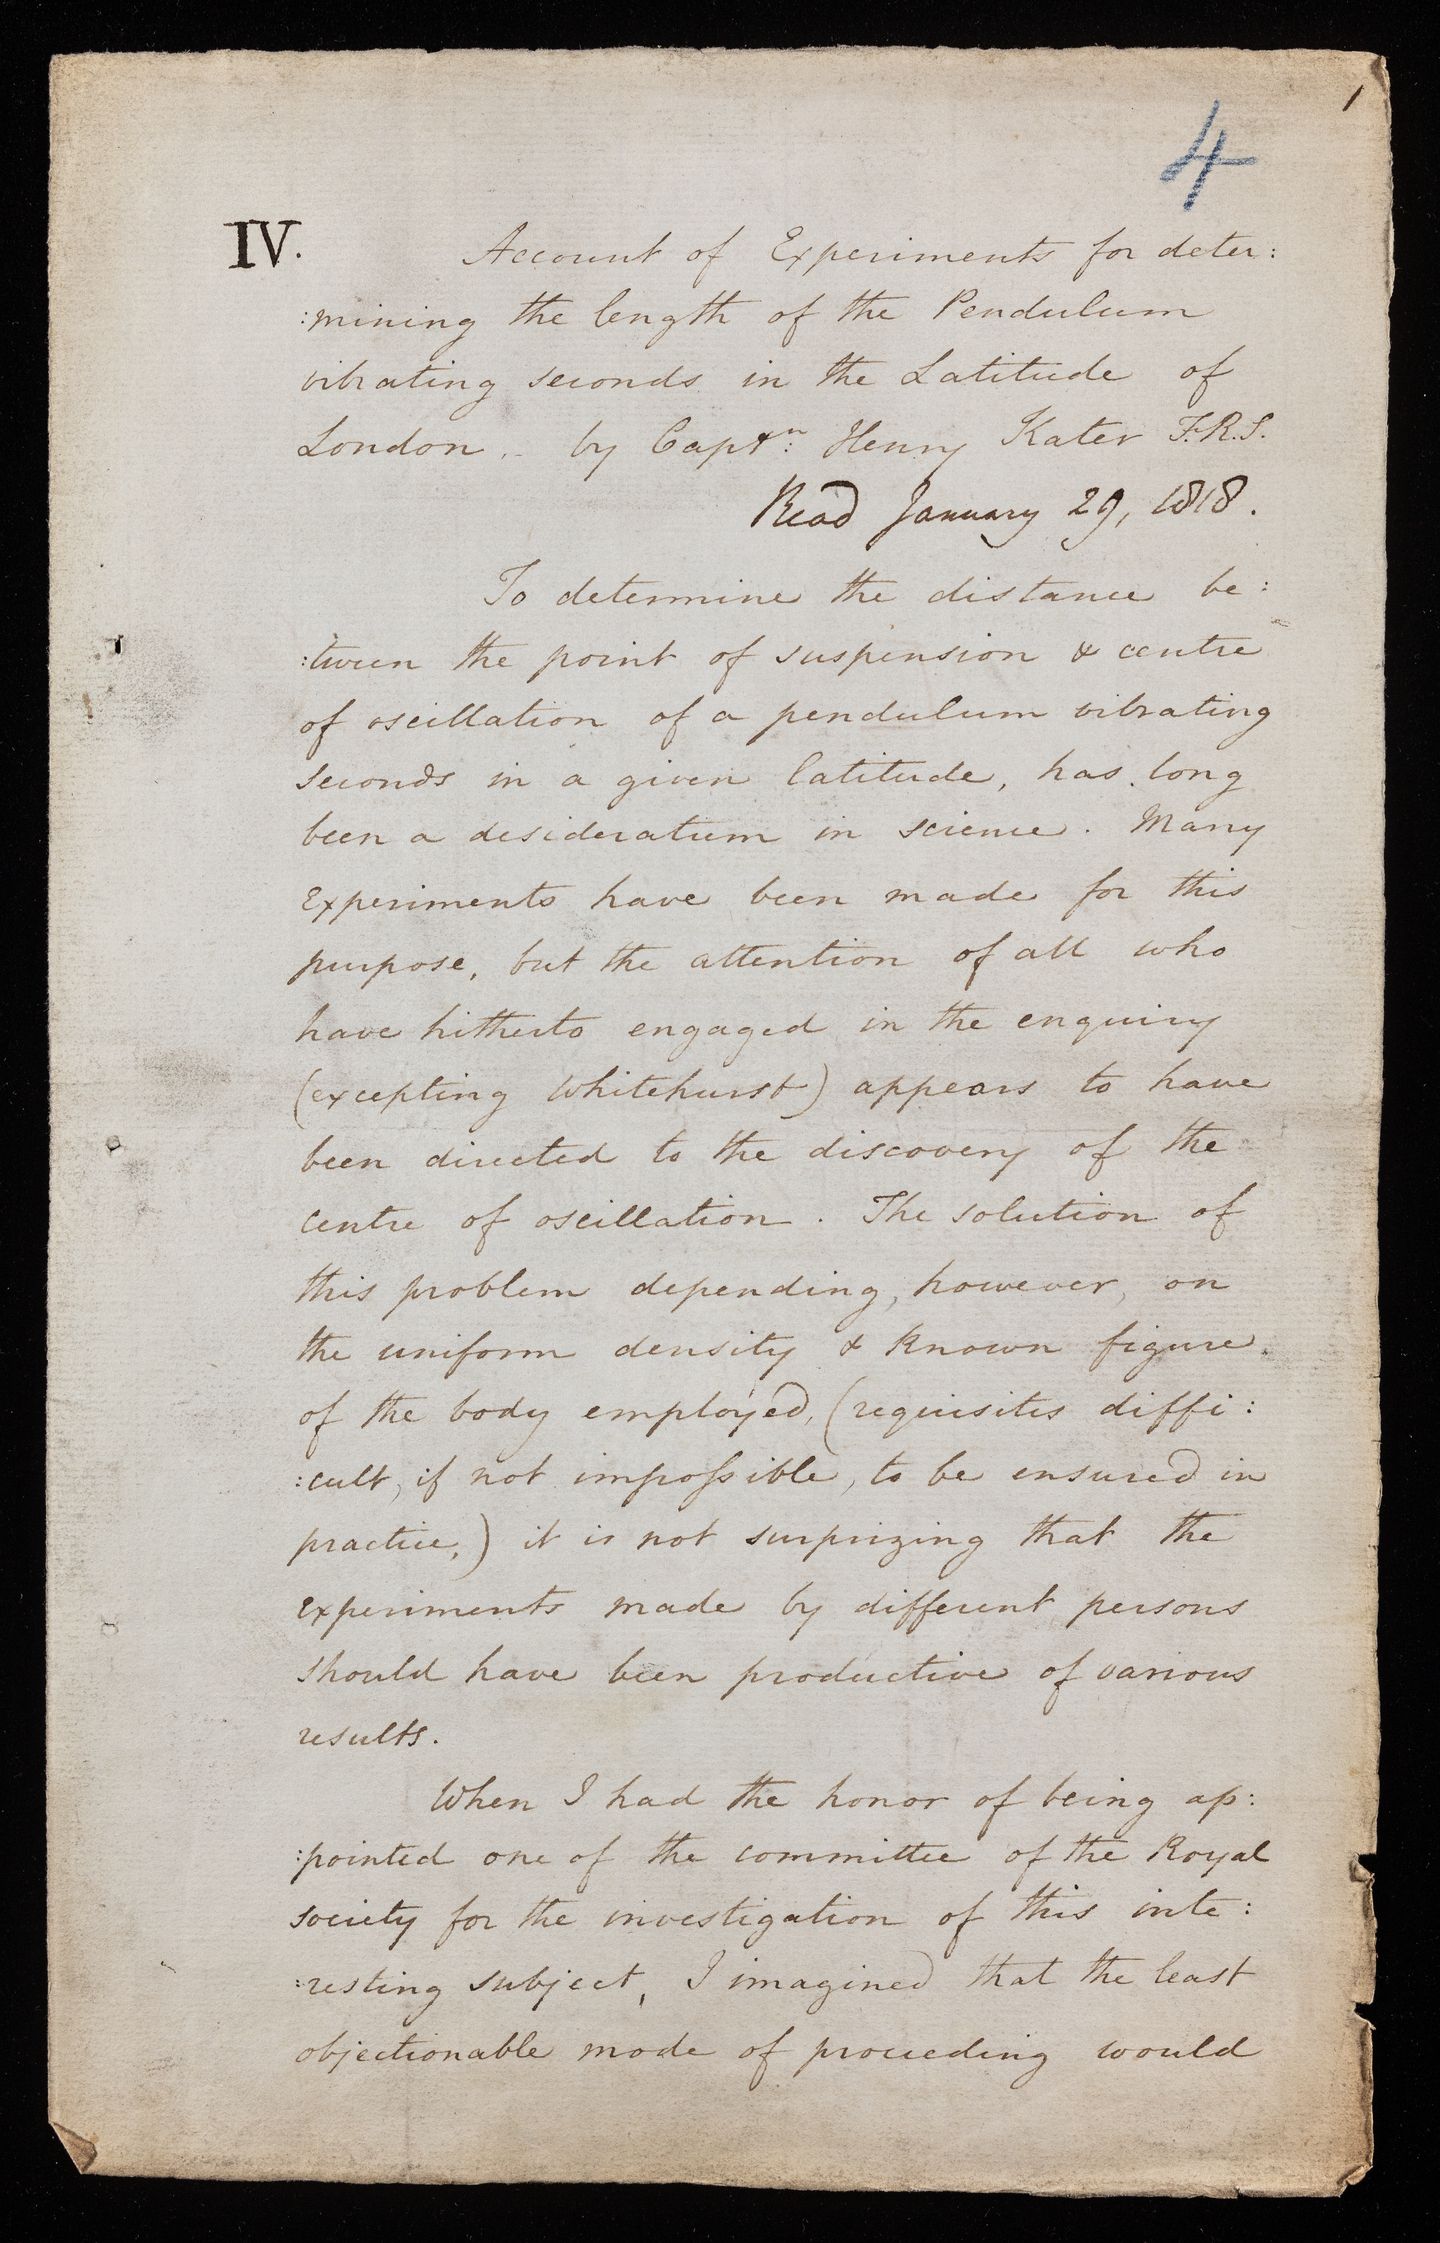 1
4
IV. Account of Experiments for deter:
:mining the length of the Pendulum
vibrating seconds in the Latitude of
London. by Captn: Henry Kater F.R.S.
Read January 29, 1818.
To determine the distance be:
:tween the point of suspension & centre
of oscillation of a pendulum vibrating
seconds in a given latitude, has long
been a desideratum in science. Many
experiments have been made for this
purpose, but the attention of all who
have hitherto engaged in the enquiry
(excepting Whitehurst) appears to have
been directed to the discovery of the
centre of oscillation. The solution of
this problem depending, however, on
the uniform density & known figure
of the body employed, (requisites diffi:
:cult, if not impoſsible, to be ensured in
practice,) it is not surprizing that the
experiments made by different persons
should have been productive of various
results.
When I had the honor of being ap:
:pointed one of the committee of the Royal
society for the investigation of this inte:
:resting subject, I imagined that the least
objectionable mode of proceeding would